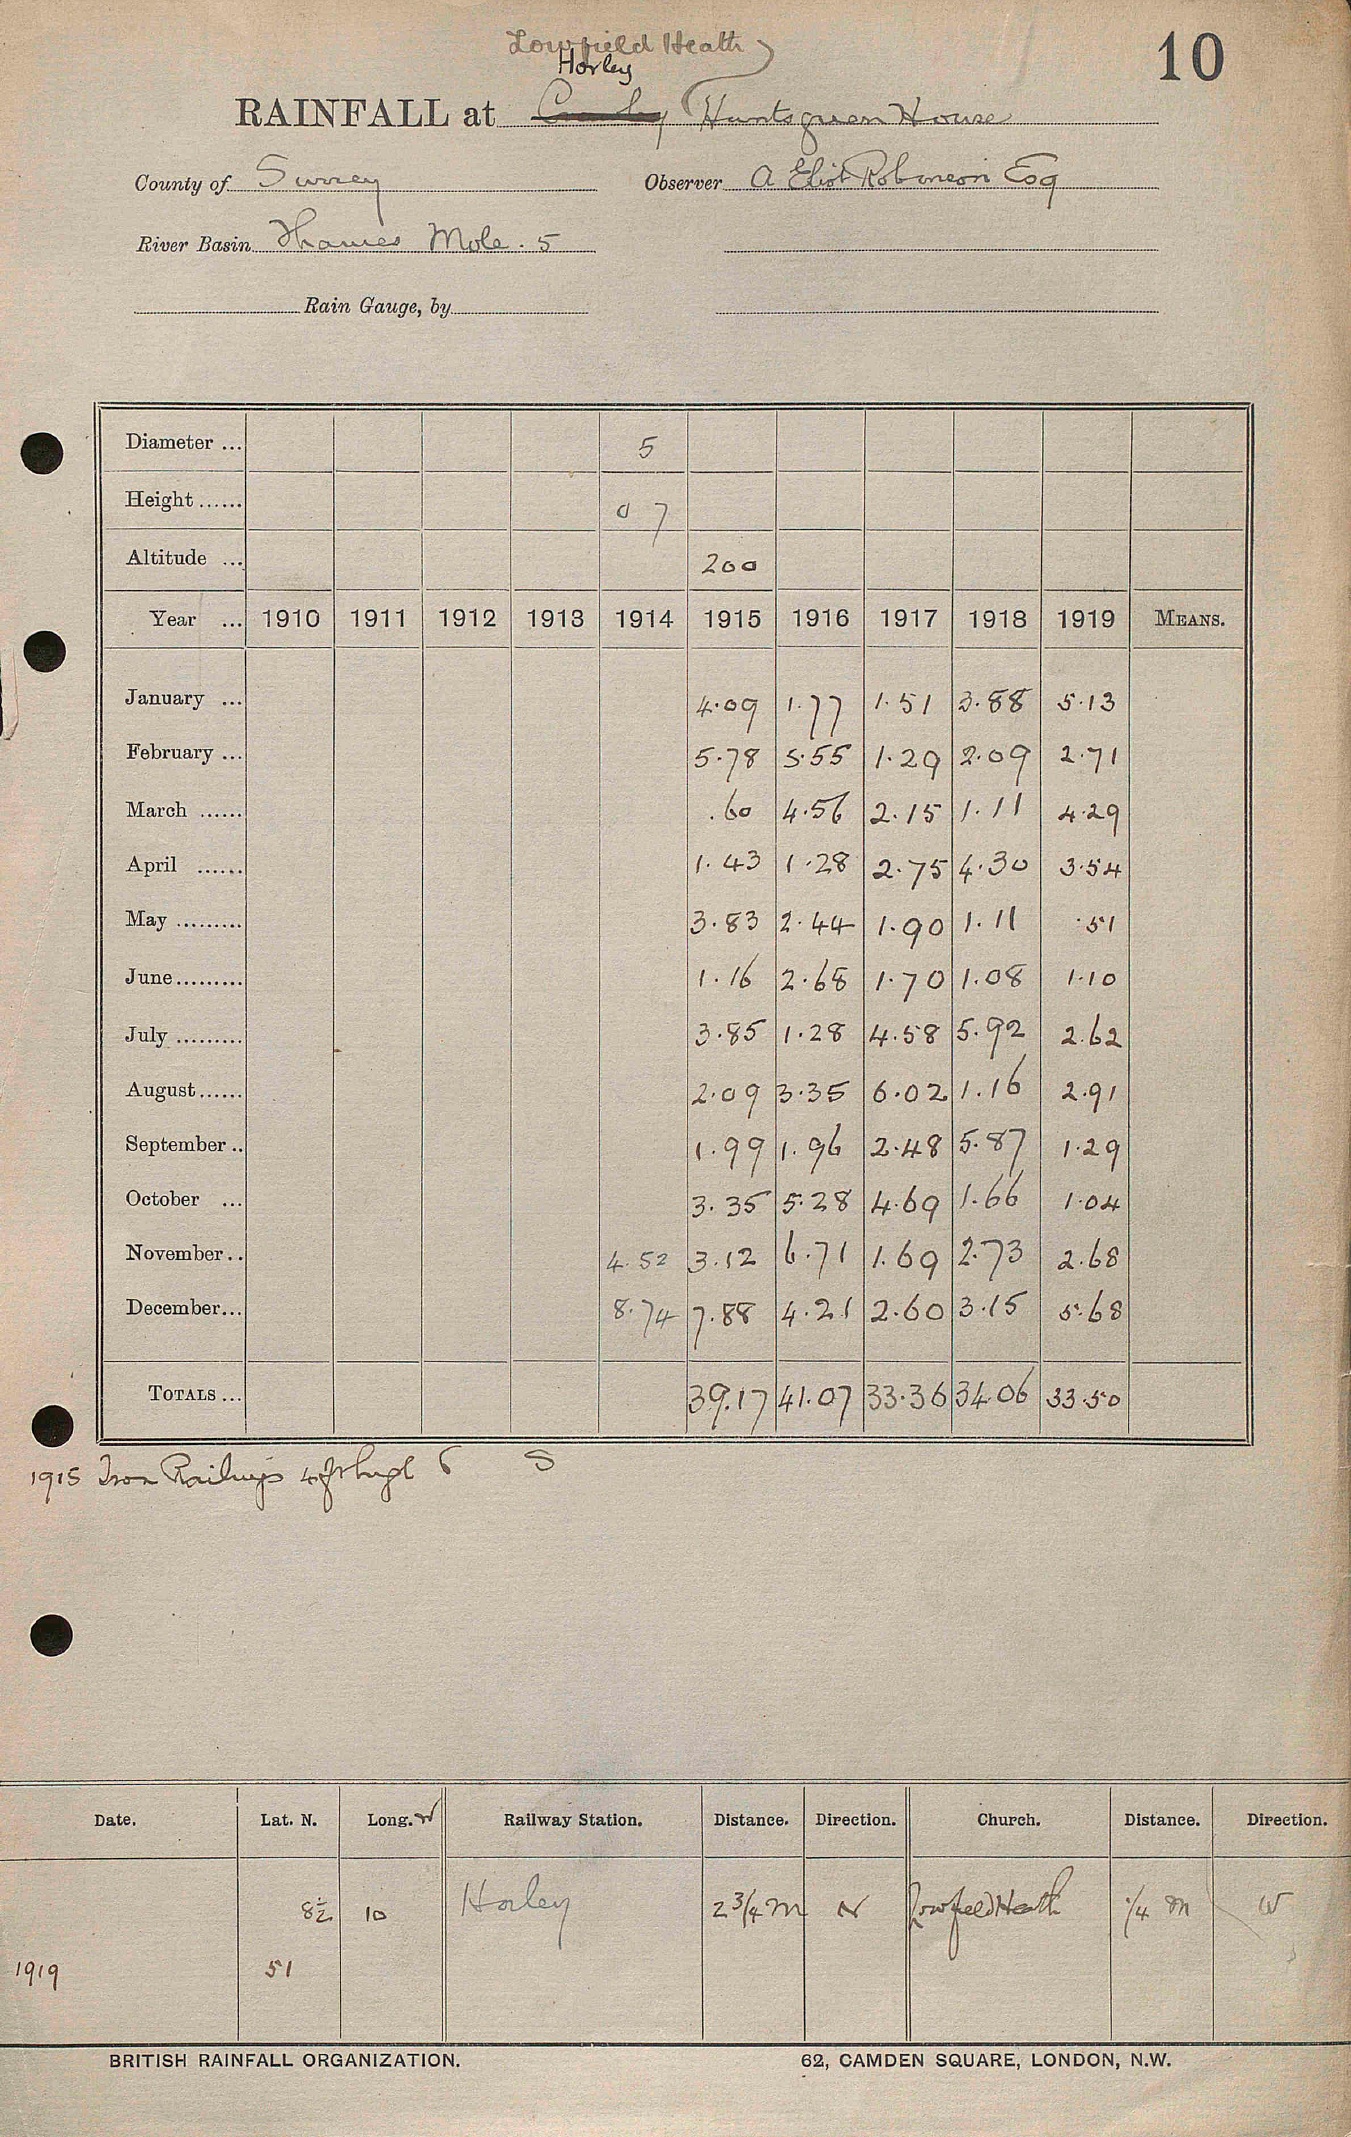 10
Lowfield Heath
Horley
RAINFALL at Huntsgreen House
County of Surrey Observer A Eliot Robinson Esq
River Basin Thames Mole . 5
Rain Gauge, by
Diameter ... 5
Height ...... 0 7
Altitude ... 200
Year ... 1910 1911 1912 1913 1914 1915 1916 1917 1918 1919 MEANS.
January ... 4.09 1.77 1.51 3.88 5.13
February ... 5.78 5.55 1.29 2.09 2.71
March ...... .60 4.56 2.15 1.11 4.29
April ...... 1.43 1.28 2.75 4.30 3.54
May ......... 3.83 2.44 1.90 1.11 .51
June ......... 1.16 2.68 1.70 1.08 1.10
July ......... 3.85 1.28 4.58 5.92 2.62
August ...... 2.09 3.35 6.02 1.16 2.91
September .. 1.99 1.96 2.48 5.87 1.29
October ... 3.35 5.28 4.69 1.66 1.04
November .. 4.52 3.12 6.71 1.69 2.73 2.68
December ... 8.74 7.88 4.21 2.60 3.15 5.68
TOTALS ... 39.17 41.07 33.36 34.06 33.50
1915 Iron Railings 4ft high 6 S
Date. Lat. N. Long. W Railway Station. Distance. Direction. Church. Distance. Direction.
8½ 10 Horley 2 3/4 m N Lowfield Heath 1/4 m W
1919 51
BRITISH RAINFALL ORGANIZATION. 62, CAMDEN SQUARE, LONDON, N.W.